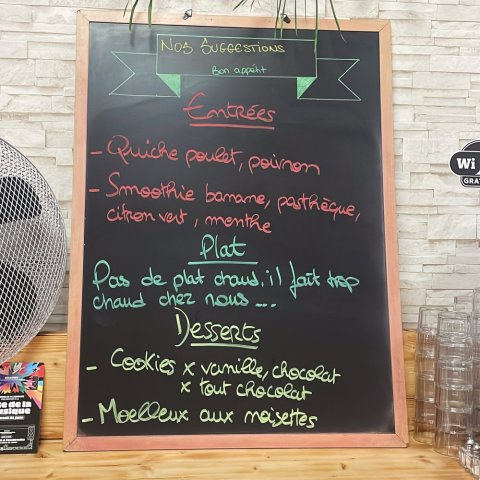 Nos Suggestions
Bon appétit
Entrées
- Quiche poulet, poivron
- Smoothie banane, pasthèque,
citron vert, menthe
Plat
Pas de plat chaud, il fait trop
chaud chez nous ...
Desserts
- Cookies x vanille, chocolat
x tout chocolat
- Moelleux aux noisettes
Wi
GRAT
te de la
usique